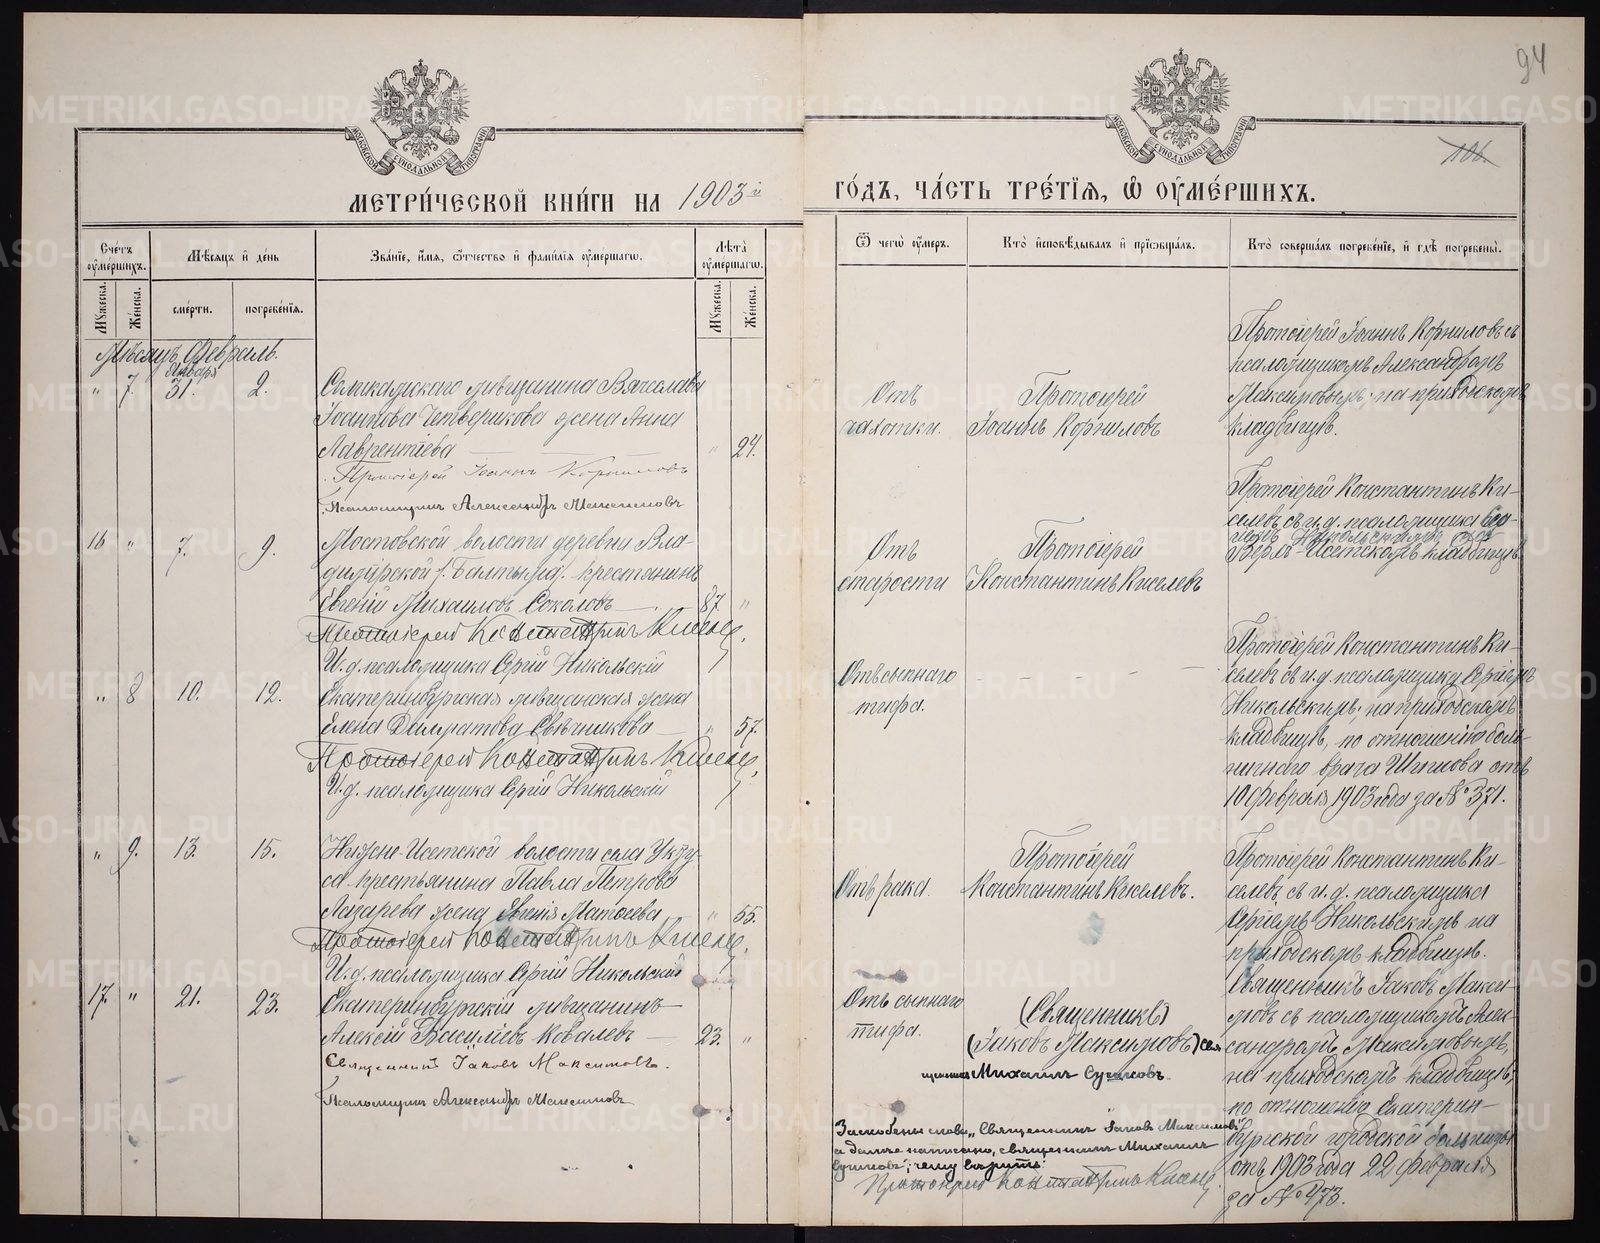 94
106.
МЕТРИ́ЧЕСКОЙ КНИ́ГИ НА 1903й ГО́ДЪ, ЧА́СТЬ ТРЕ́ТІѦ, Ѡ ОУМЕ́РШИХЪ.
МОСКОВСКОЙ СѴНОДАЛЬНОЙ ТИПОГРАФІИ
МОСКОВСКОЙ СѴНОДАЛЬНОЙ ТИПОГРАФІИ
Сче́тъ оуме́ршихъ.
Мѣсяцъ и день
Зва́ніе, имя, ѿчество и фами́лія оуме́ршагѡ.
Лѣта̀ оуме́ршагѡ.
Ѿ чегѡ̀ оу́меръ.
Кто̀ исповѣ́дывалъ и пріѡбща́лъ.
Кто̀ соверша́лъ погребе́ніе, и гдѣ̀ погребены̀.
Мужеска.
Женска.
сме́рти.
погребе́нія.
Мужеска.
Женска.
Мѣсяцъ Февраль.
Января
" 7. 31. 2.
Соликамскаго мѣщанина Вячеслава
Іоаннова Четверикова жена Анна
Лаврентіева " 24.
Протоіерей Іоаннъ Корниловъ
Псаломщикъ Александръ Максимовъ
Отъ
чахотки.
Протоіерей
Іоаннъ Корниловъ
Протоіерей Іоаннъ Корниловъ съ
псаломщикомъ Александромъ
Максимовымъ, на приходскомъ
кладбищѣ.
16 " 7. 9.
Мостовской волости деревни Вла-
крестьянинъ
Евгеній Михаиловъ Соколовъ 87. "
Протоіерей Константинъ Киселевъ.
И. д. псаломщика Сергій Никольскій
Отъ
старости
Протоіерей
Константинъ Киселевъ
Протоіерей Константинъ Ки-
селевъ съ и. д. псаломщика Сер-
гіемъ Никольскимъ на
Верхъ-Исетскомъ кладбищѣ.
" 8 10. 12.
Екатеринбургская мѣщанская жена
Елена Далматова Свѣчникова " 57.
Протоіерей Константинъ Киселевъ.
И. д. псаломщика Сергій Никольскій
Отъ сыпнаго
тифа.
- - - -
Протоіерей Константинъ Ки-
селевъ съ и. д. псаломщика Сергіемъ
Никольскимъ, на приходскомъ
кладбищѣ, по отношенію боль-
ничнаго врача отъ
10 февраля 1903 года за № 371.
" 9. 13. 15.
Нижне-Исетской волости села Укту-
са крестьянина Павла Петрова
Лазарева жена Евгенія Матѳеева " 55.
Протоіерей Константинъ Киселевъ.
И. д. псаломщика Сергій Никольскій
Отъ рака.
Протоіерей
Константинъ Киселевъ.
Протоіерей Константинъ Ки-
селевъ съ и. д. псаломщика
Сергіемъ Никольскимъ на
приходскомъ кладбищѣ.
17. " 21. 23.
Екатеринбургскій мѣщанинъ
Алексій Василіевъ Ковалевъ 23. "
Священникъ Іаковъ Максимовъ.
Псаломщикъ Александръ Максимовъ
Отъ сыпнаго
тифа.
(Священникъ)
(Іаковъ Максимовъ) свя
щенникъ Михаилъ Сушковъ.
Священникъ Іаковъ Макси-
мовъ съ псаломщикомъ Алек-
сандромъ Максимовымъ,
на приходскомъ кладбищѣ;
по отношенію Екатерин-
бургской городской больницы
отъ 1903 года 22 февраля
за № 473.
Заскоблены слова „Священникъ Іаковъ Максимовъ",
а далѣе написано, священникъ Михаилъ
Сушковъ"; чему вѣрить.
Протоіерей Константинъ Киселевъ
METRIKI.GASO-URAL.RU